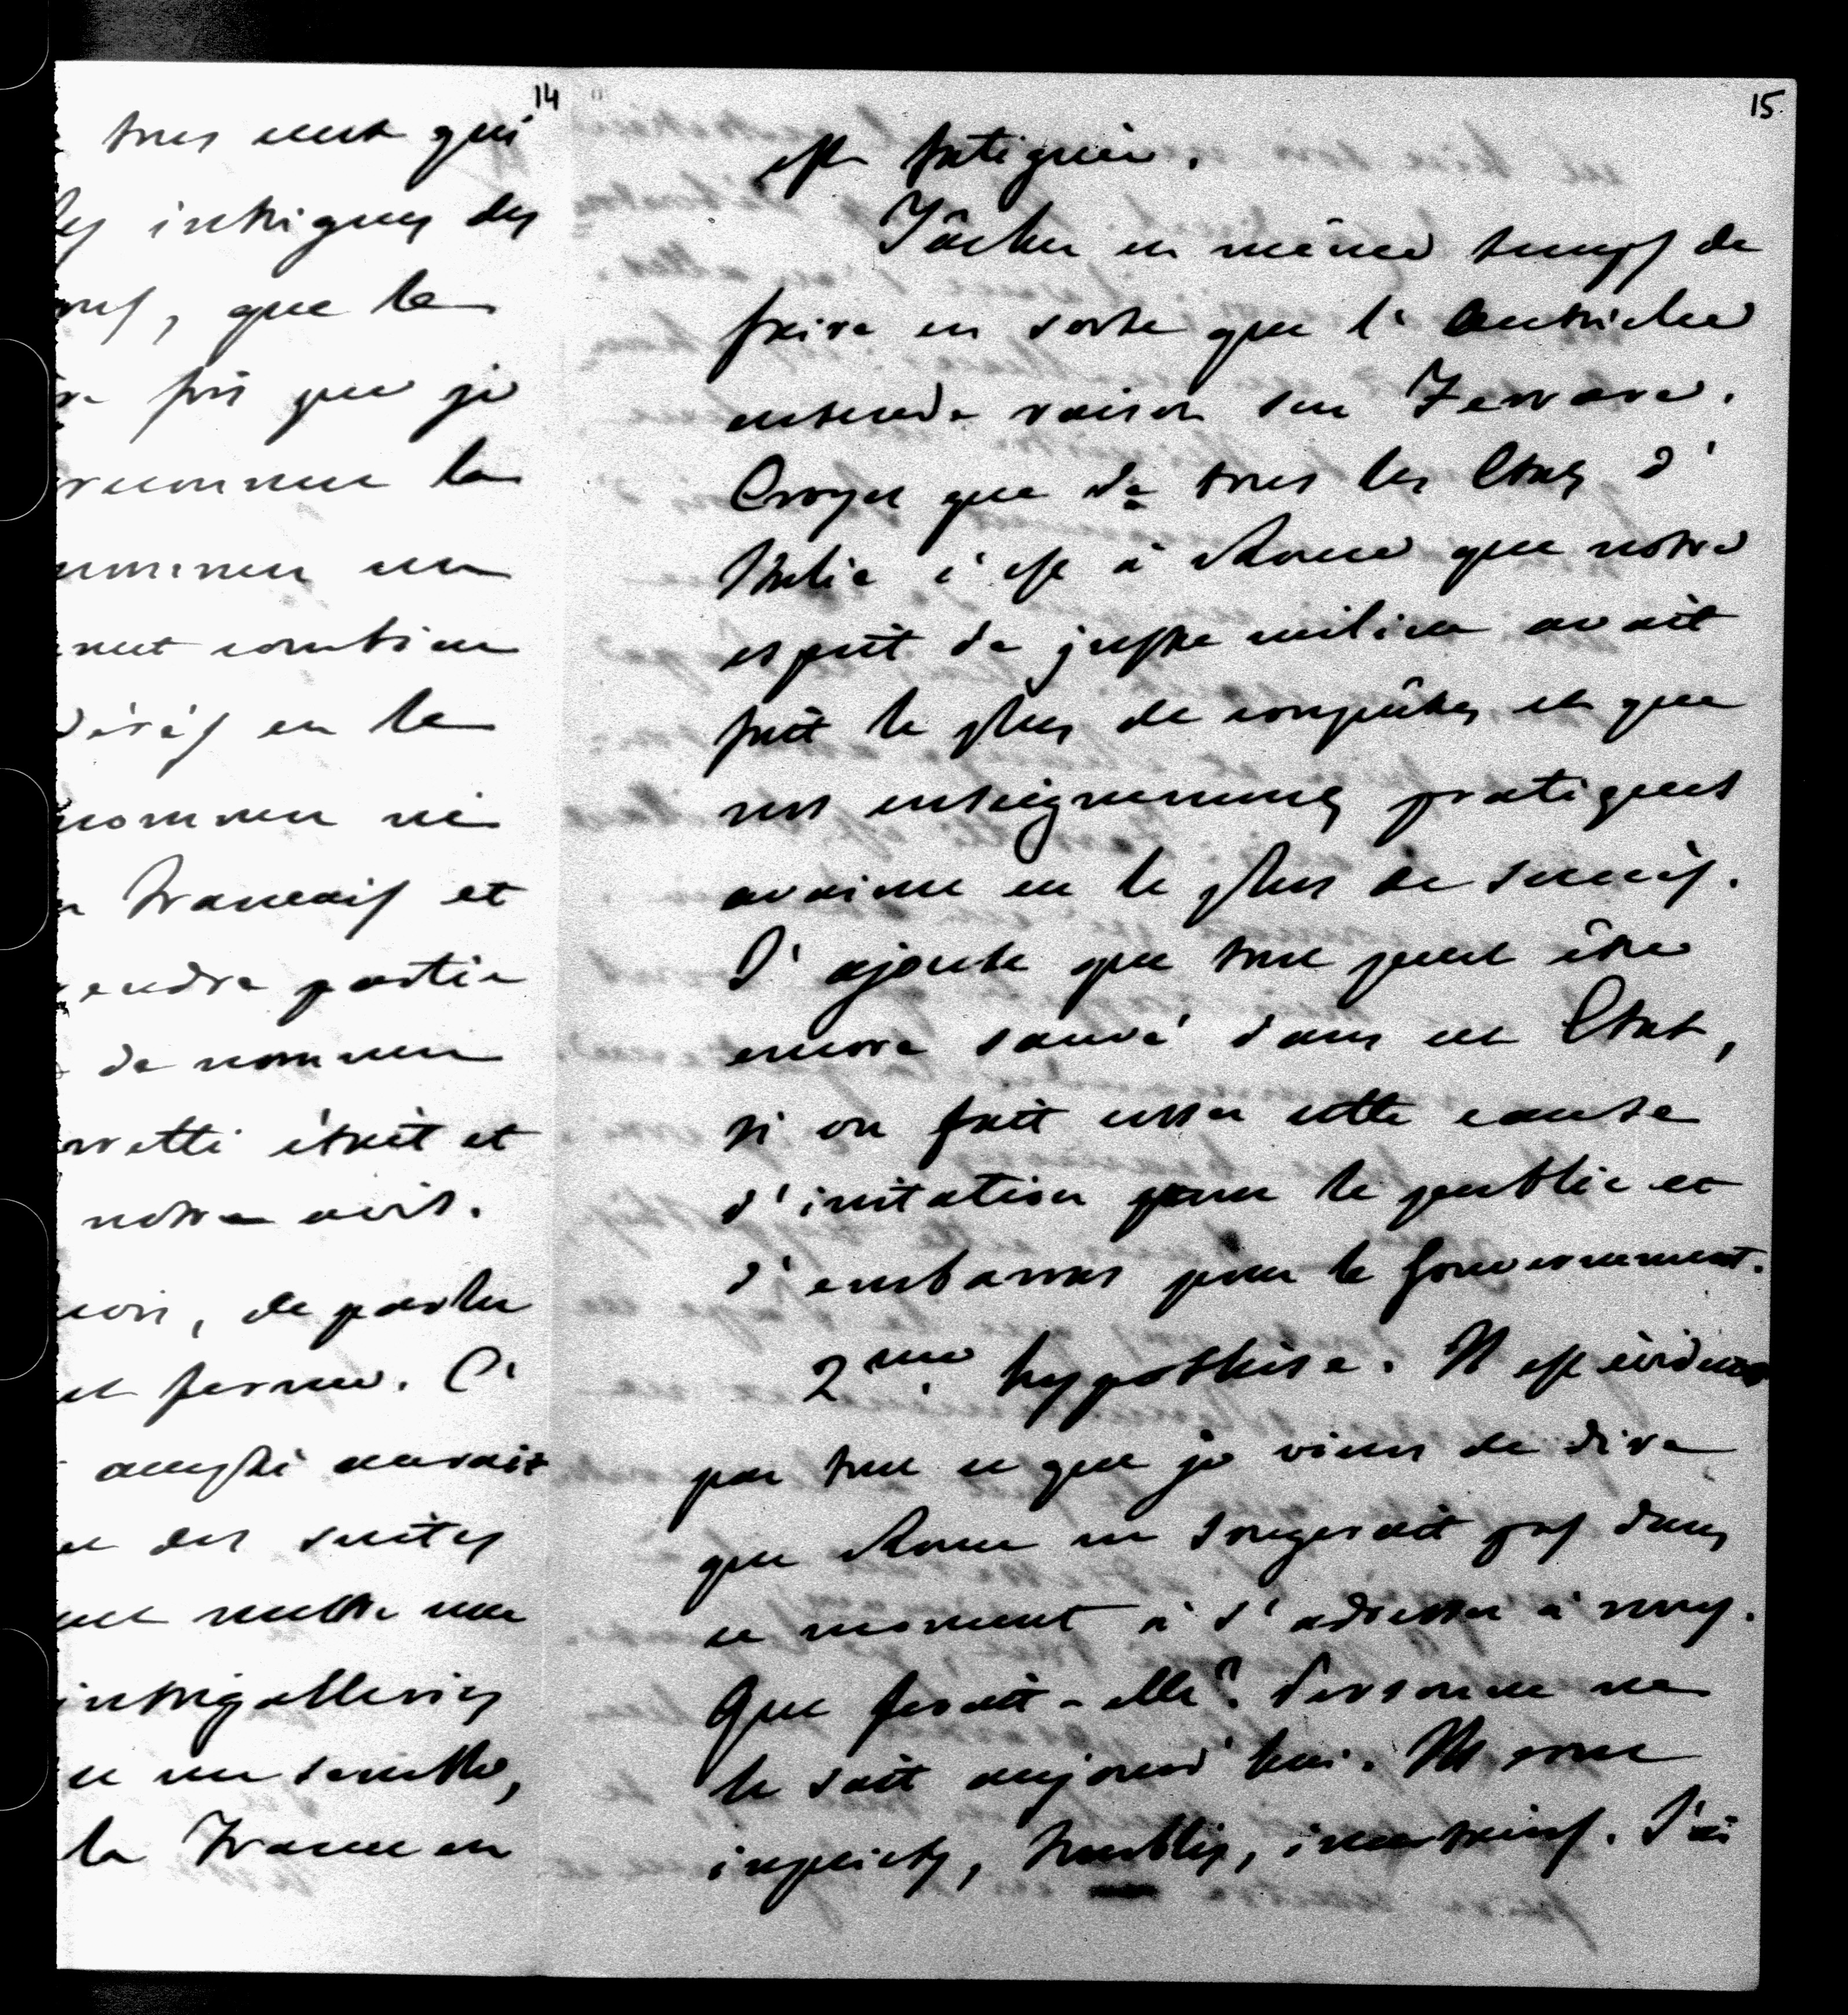 14
tous ceux qui
intrigues des
, que le
fois que je
la
un
combien
en le
ni
Francais et
partie
de nommer
etti était et
notre avis.
, de parler
et ferme. C'
aurait
des suites
mette une
me semble,
la France en
15.
est fatiguée.
Tâchez en même temps de
faire en sorte que l'Autriche
entende raison sur Ferrare.
Croyez que de tous les Etats d'
Italie c'est à Rome que notre
esprit de juste milieu avait
fait le plus de conquêtes et que
nos enseignements pratiques
avaient eu le plus de succès.
J'ajoute que tout peut être
encore sauvé dans cet Etat,
si on fait cesser cette cause
d'irritation pour le public et
d'embarras pour le Gouvernement.
2me hypothèse. Il est évident
par tout ce que je viens de dire
que Rome ne songerait pas dans
ce moment à s'adresser à nous.
Que ferait-elle? Personne ne
le sait aujourd'hui. Ils sont
inquiets, troublés, incertains. J'ai